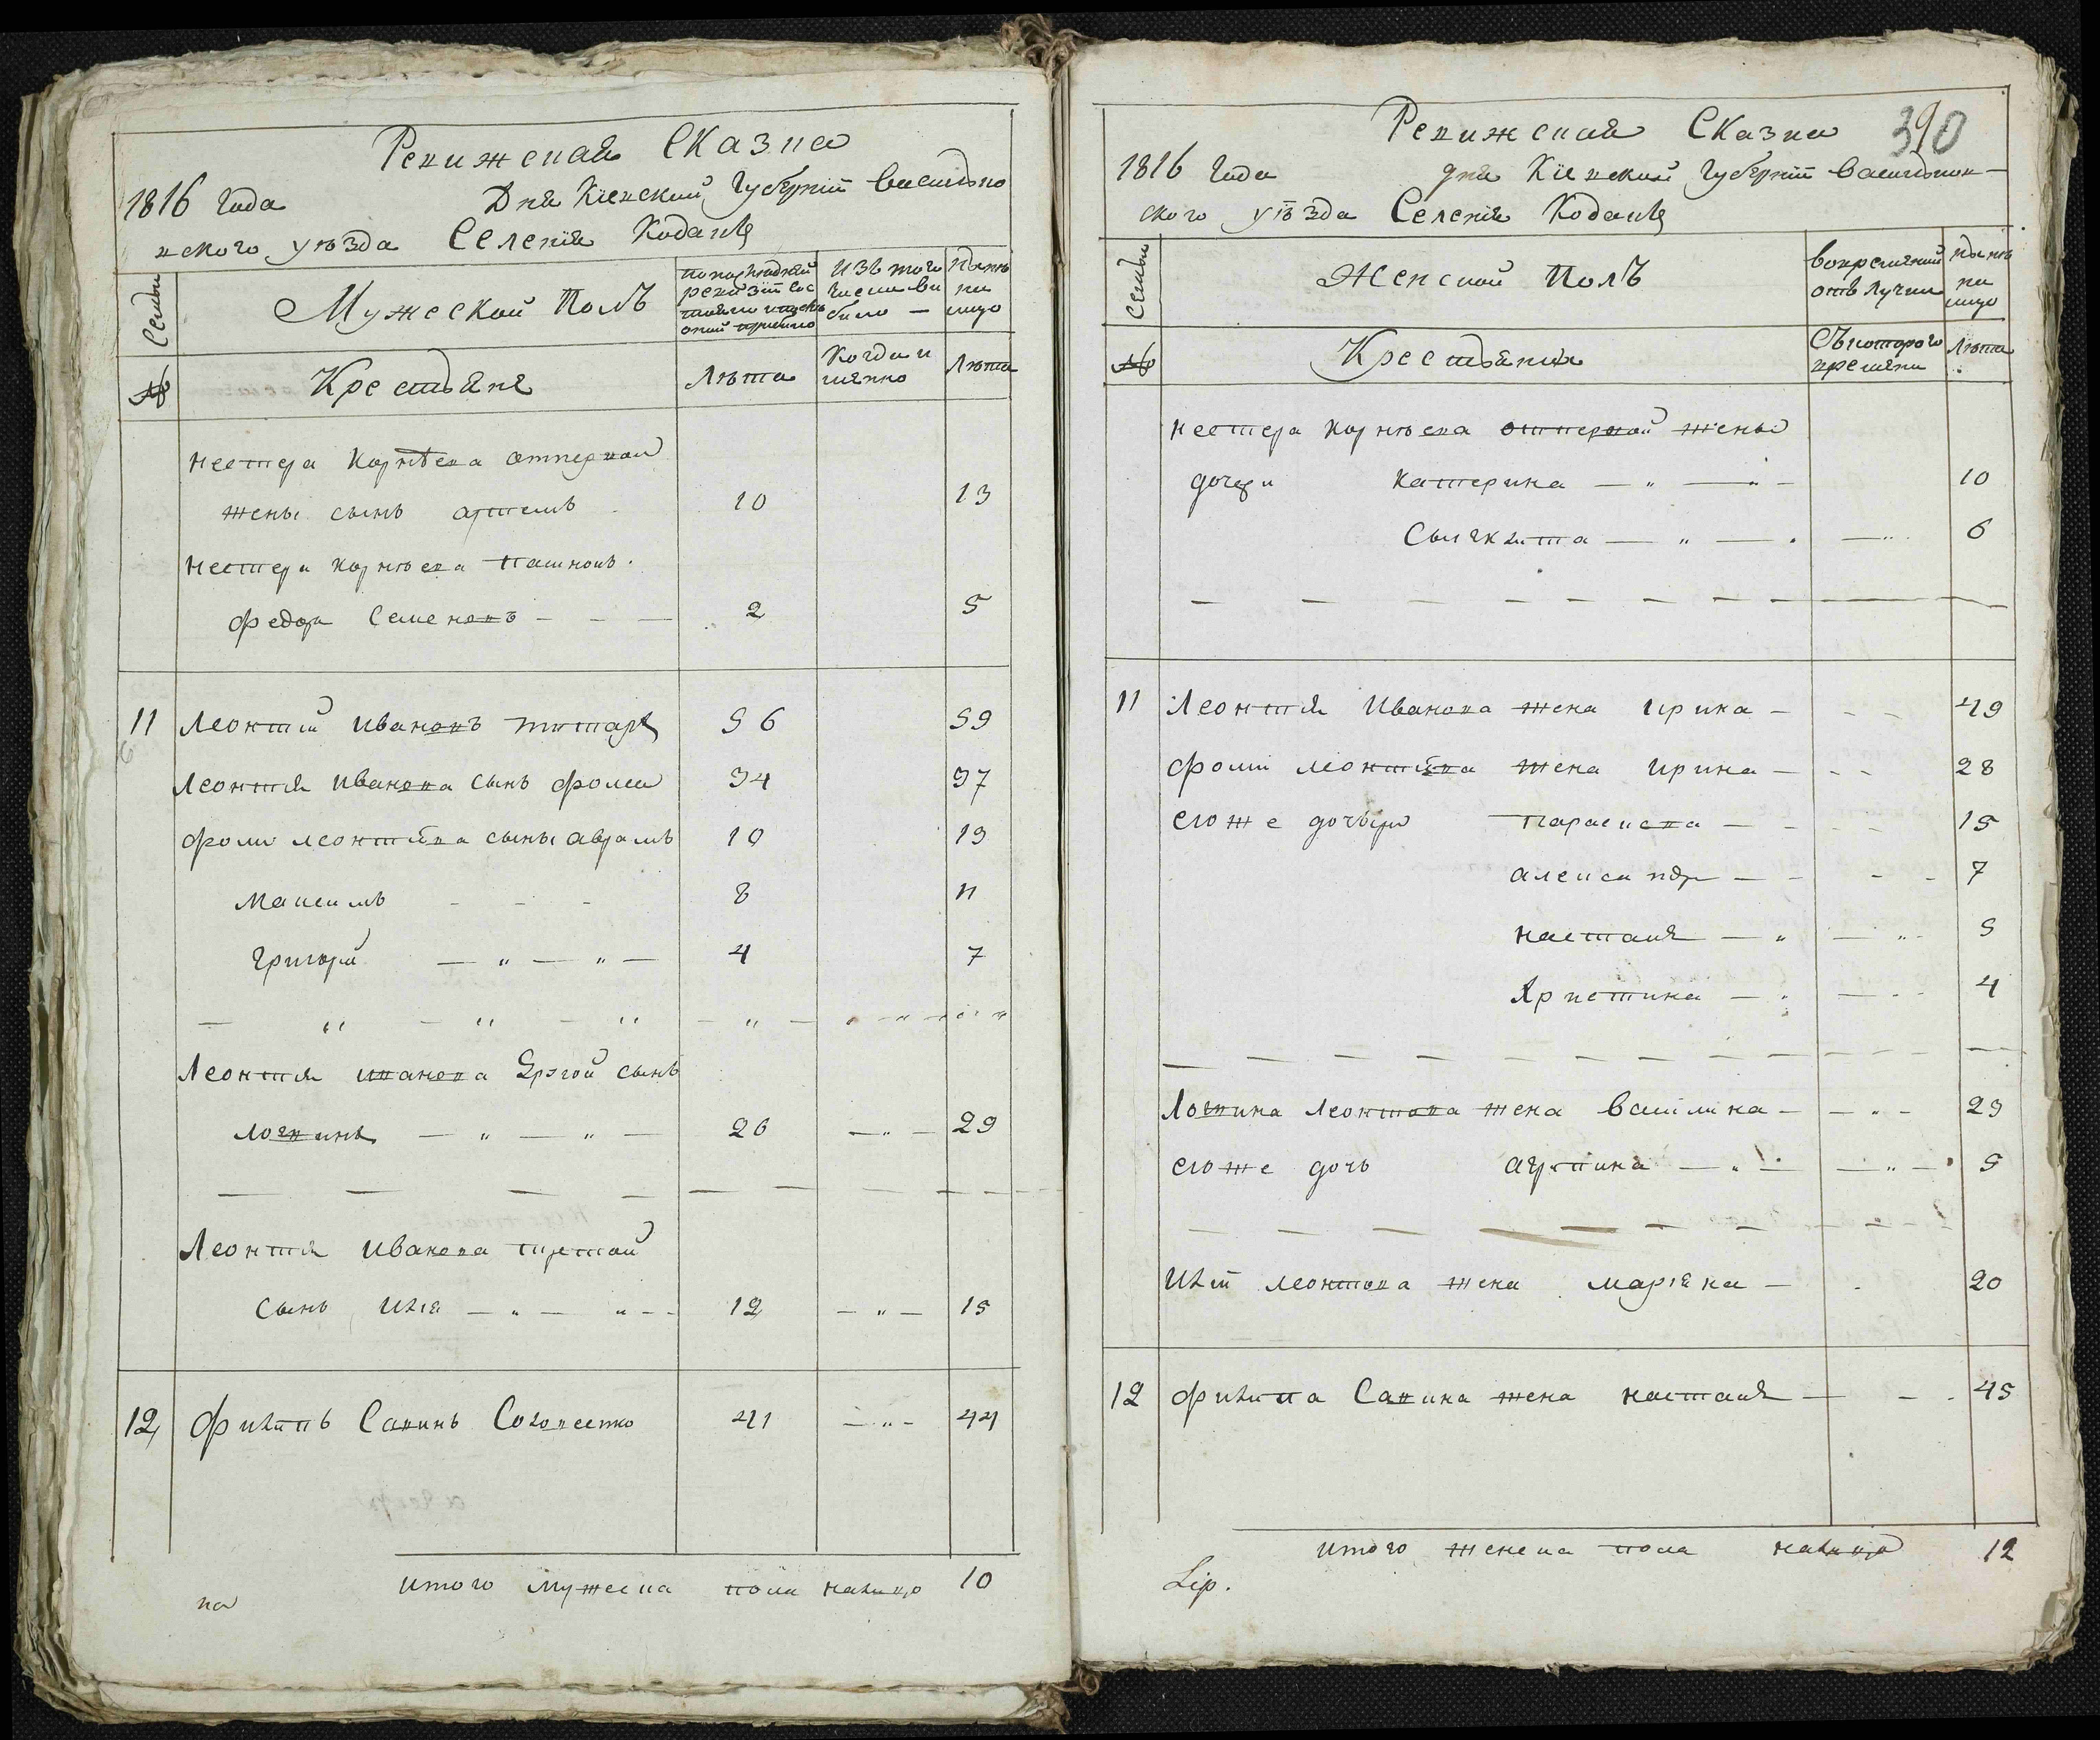 Ревижская Сказка
1816 Года Дня Кіевской Губерніи Василько
вского уѣзда Селенія Коданкѣ
Семьи
Мужеской Полъ
по последней
ревизіи сос
тояло
изъ того
числа вы
было —
нынѣ
на
лицо
№
Крестьяне
Лѣта
Когда и
имянно
Лѣта
нестера Корнѣева отпервой
жены сынъ артемъ 10 13
нестера корнѣева пасинокъ
федор Семеновъ — — — 2 5
11 Леонтій Ивановъ титарь 56 59
Леонтія Иванова сынъ фома 34 37
фоми леонтіева сыны аврамъ 10 13
Максимъ - - - 8 11
Григорій — „ — „ — 4 7
Леонтія иванова Другой сынъ
логвинъ — „ — „ — 26 — „ — 29
Леонтія Иванова третой
сынъ Илія — „ — „ — 12 — „ — 15
12 Филипъ Савинъ Соловейко 41 — „ - 44
итого мужеска пола налицо 10
на
390
Ревижская Сказка
1816 Года дня Кіевской Губерніи Васильков—
ского уѣзда Селенія Коданкѣ
Семьи
Женской Полъ
вовременной
отлучки
нынѣ
на
лицо
№
Крестьянки
Съкоторого
времяни
Лѣта
нестера корнѣева отпервой жены
дочери катерина — „ — „ - 10
Сынклита — „ — 6
11 Леонтія Иванова жена ирина — - - 49
фоми леонтіева жена ирина — - - 28
егоже дочери параскева — 15
александр — - 7
настасія — „ — „ - 5
Христина — 4
Логвина Леонтова жена василина — — „ - 23
егоже дочь агрипина — „ — — „ — 5
Иліи леонтова жена маріяна — 20
12 филипа Савина жена настасія — - 45
итого женска пола налицо 12
Lip.